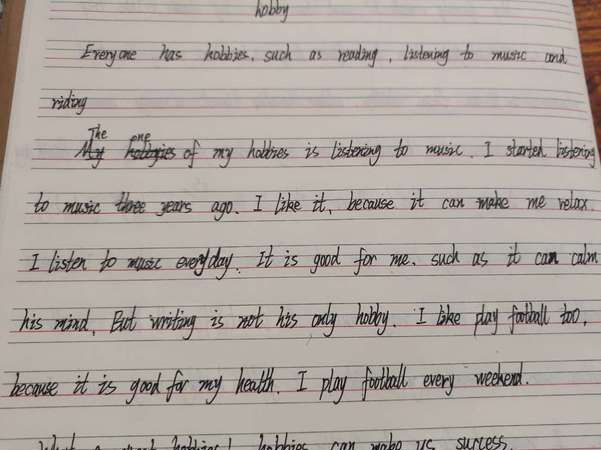 hobby
Everyone has hobbies, such as reading, listening to music and
riding
The one
My hobbgies of my hobbies is listening to music. I started listening
to music three years ago. I like it, because it can make me relax.
I listen to music everyday. It is good for me. such as it can calm
his mind. But writing is not his only hobby. I like play football too,
because it is good for my health. I play football every weekend.
What a great hobbies! hobbies can make us success.